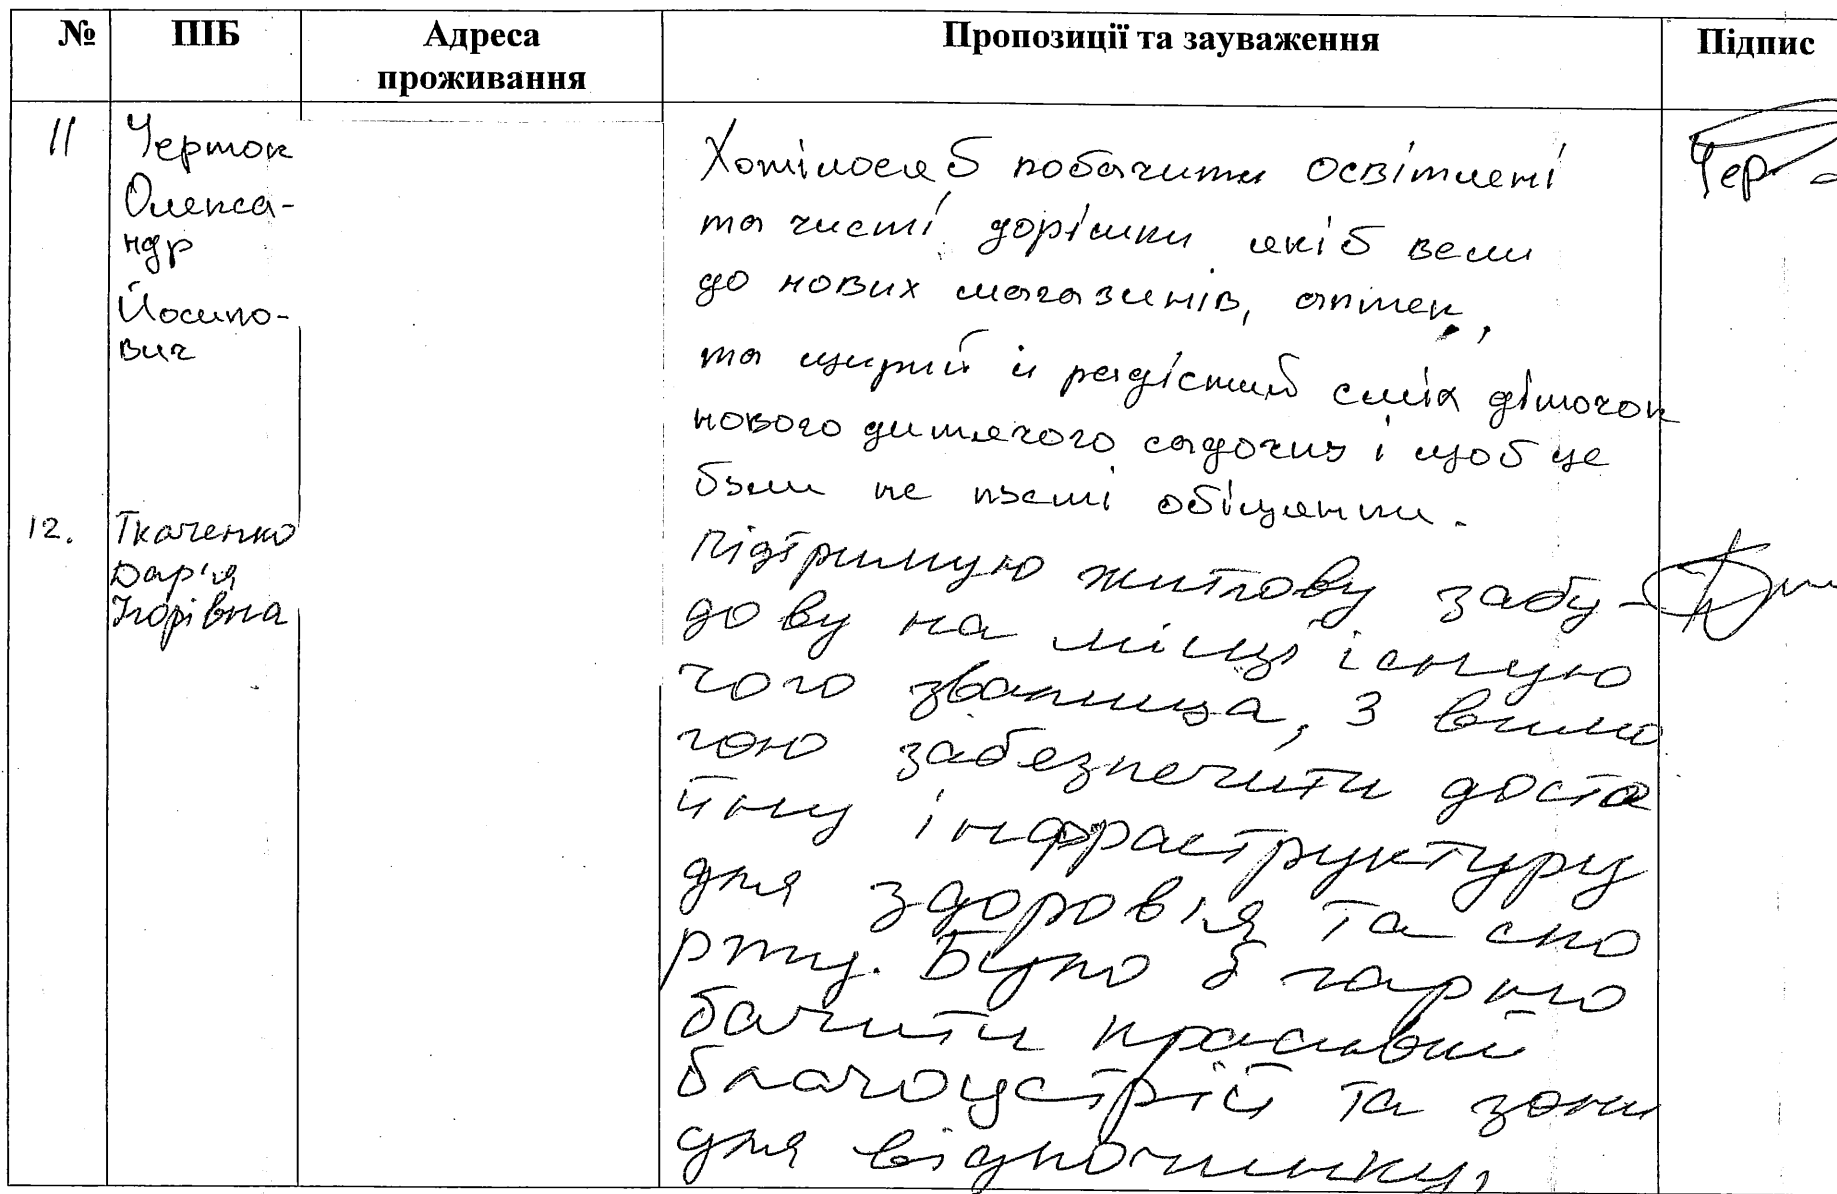 № ПІБ Адреса проживання Пропозиції та зауваження Підпис
11 Черток Олекса-ндр Йосипо-вич
Хотілося б побачити освітлені
та чисті доріжки які б вели
до нових магазинів, аптек,
та щирий й радісний сміх діточок
нового дитячого садочку і щоб це
були не пусті обіцянки.
Чер
12. Ткаченко Дар'я Ігорівна
підтримую житлову забу-
дову на місці існую
чого звалища, з вимо
гою забезпечити досто
йну інфраструктуру
для здоров'я та спо
рту. Було б гарно
бачити красивий
благоустрій та зони
для відпочинку,